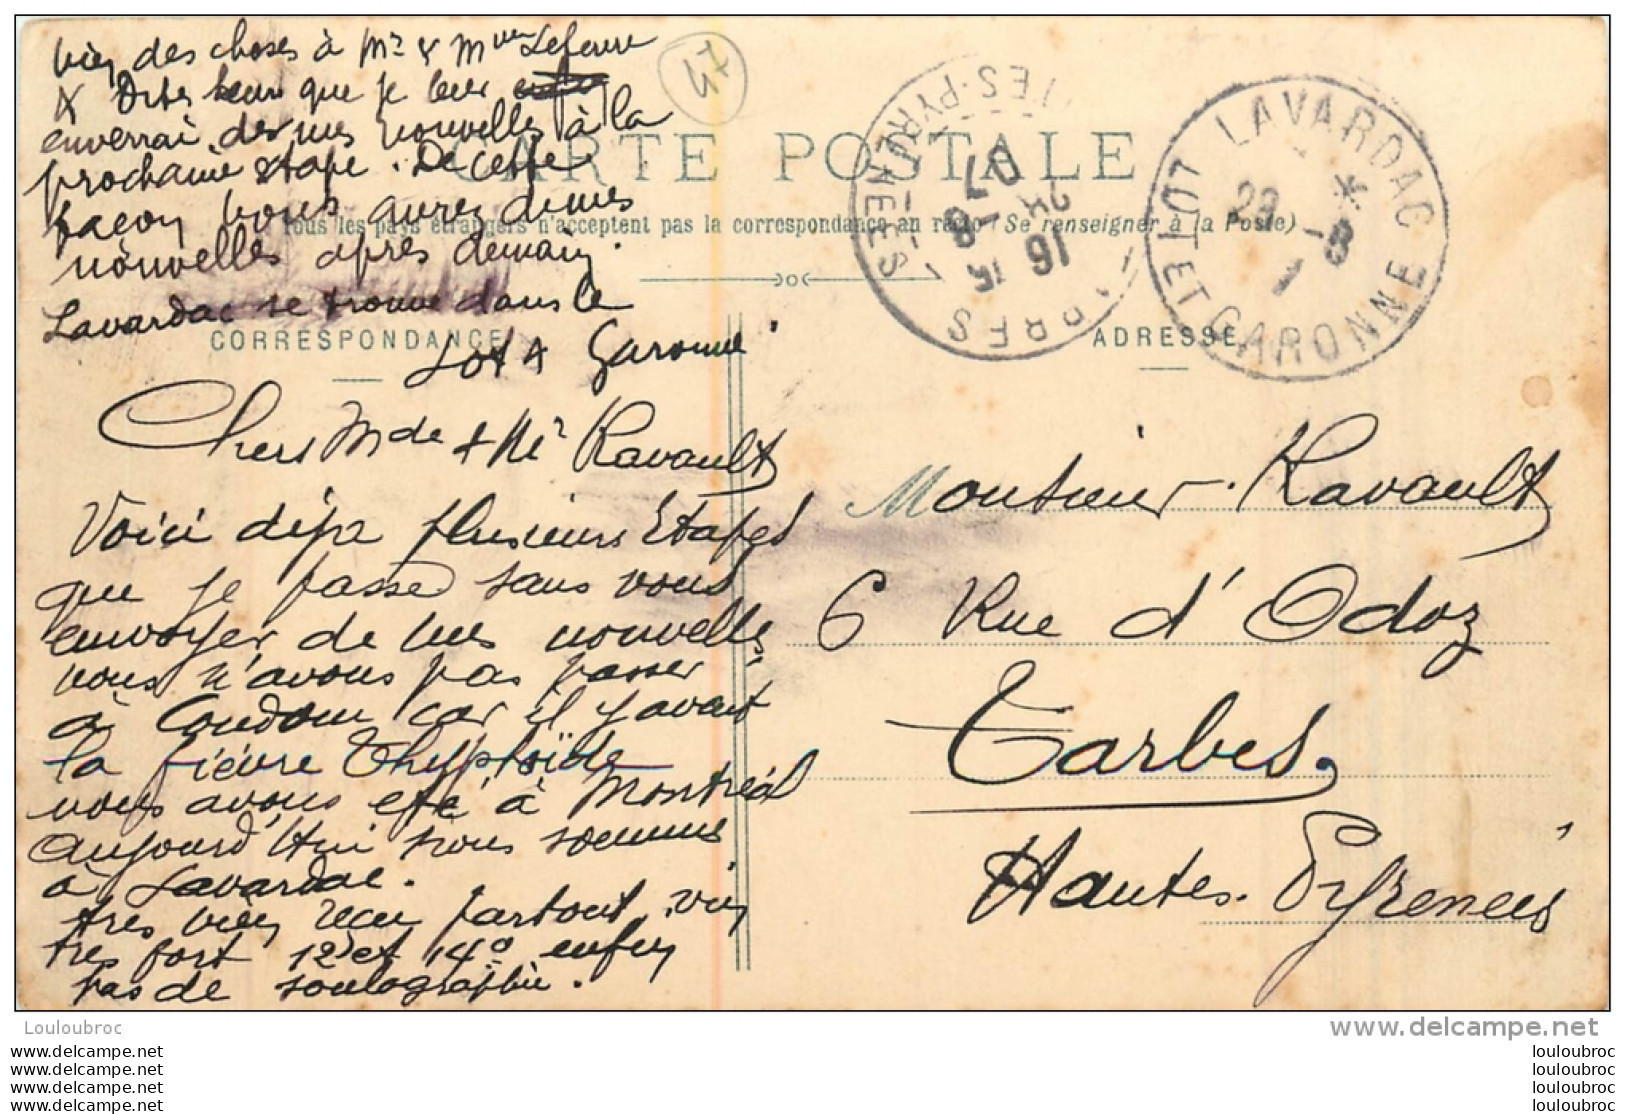 bien des choses à Mr & Mme Lefevre
X Dites leur que je leur
enverrai des mes nouvelles à la
prochaine étape. De cette
façon vous aurez de mes
nouvelles après demain.
Lavardac se trouve dans le
Lot & Garonne
CARTE POSTALE
Tous les pays étrangers n'acceptent pas la correspondance au recto (Se renseigner à la Poste)
CORRESPONDANCE
Chers Mde & Mr Ravault
Voici déja plusieurs Etapes
que je passe sans vous
envoyer de mes nouvelles
nous n'avons pas passer
à Condom car il y avait
la fièvre thyphoïde
nous avons eté à Montréal
aujourd'hui nous sommes
à Lavardac.
tres bien reçu partout, vin
tres fort 12 et 14° enfin
pas de soulographie.
ADRESSE
Monsieur Ravault
6 Rue d'Odoz
Tarbes.
Hautes-Pyrénées
LAVARDAC
LOT ET GARONNE
29 - 8
TES-PYRENEES
16
15
8
07
Louloubroc
www.delcampe.net
www.delcampe.net
www.delcampe.net
www.delcampe.net
www.delcampe.net
louloubroc
louloubroc
louloubroc
louloubroc